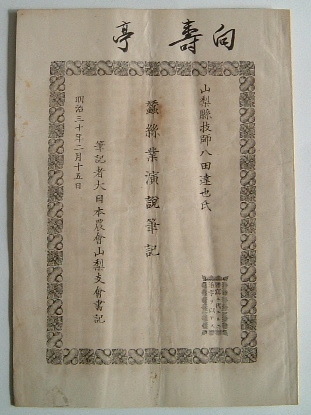 向壽亭
山梨縣技師八田達也氏
蠶絲業演說筆記
筆記者大日本農會山梨支會書記
明治三十年二月十五日